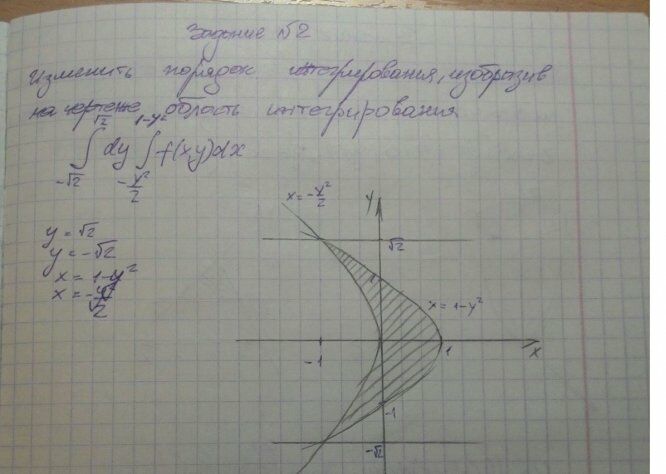 Задание №2
Изменить порядок интегрирования, изобразив
на чертеже область интегрирования
√2 1-y²
∫ dy ∫ f(xy)dx
-√2 -y²/2
y = √2
y = -√2
x = 1-y²
x = -y²/2
x = -y²/2
y
√2
1
x = 1-y²
-1
1
x
-1
-√2